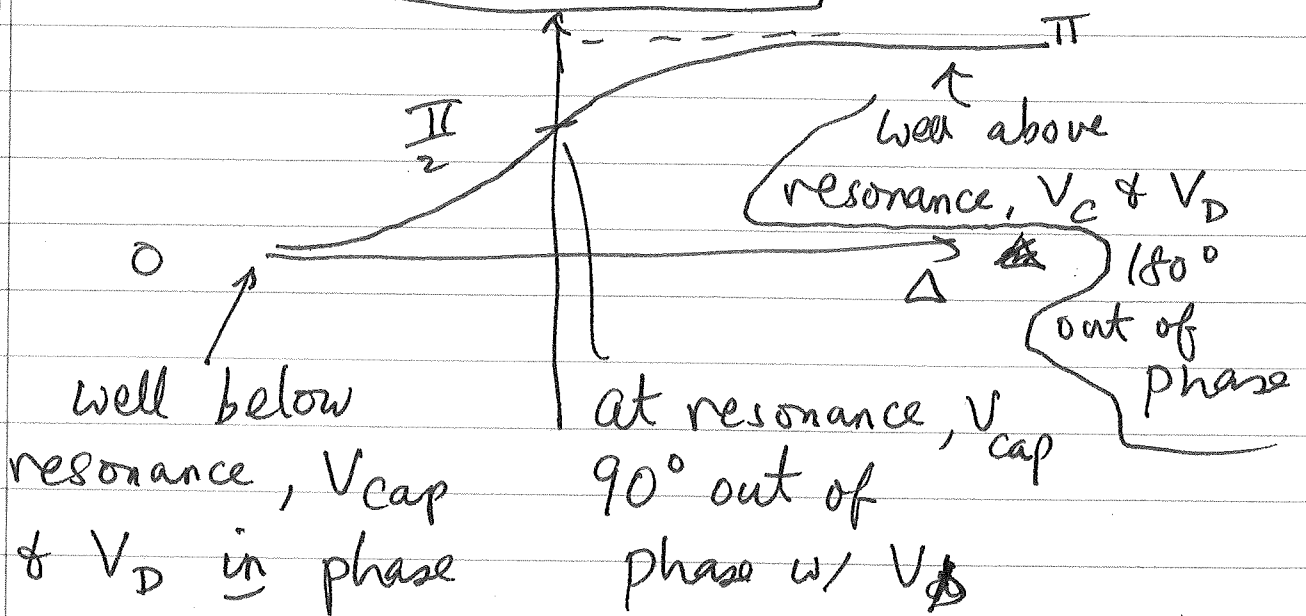 π
π/2
well above
resonance, V_C & V_D
180°
out of
phase
0
Δ
well below
resonance, V_cap
& V_D in phase
at resonance, V_cap
90° out of
phase w/ V_D